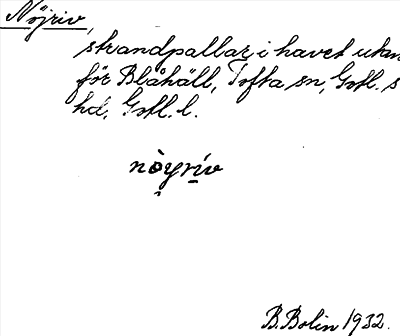 Nöjriv,
strandpallar i havet utan
för Blåhäll, Tofta sn, Gotl. s
hd, Gotl. l.
nòyrív
B. Bolin 1932.